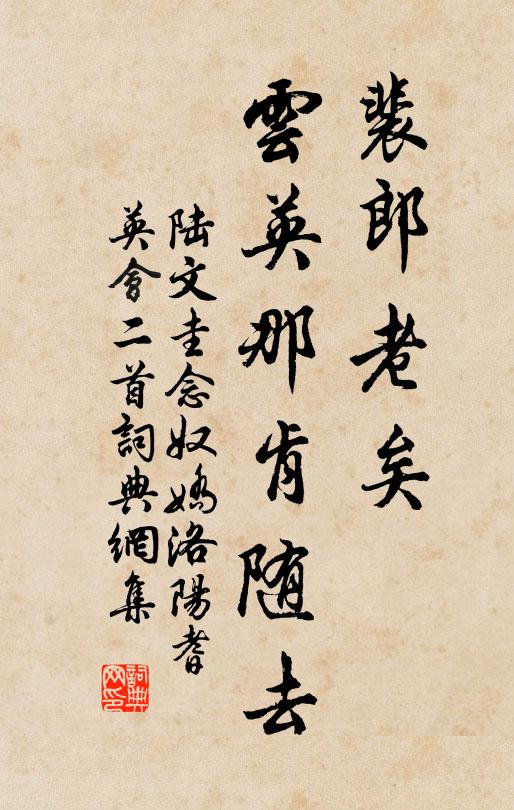 裴郎老矣
雲英那肯随去
陆文圭念奴嬌洛陽耆
英會二首詞典網集
詞典網印